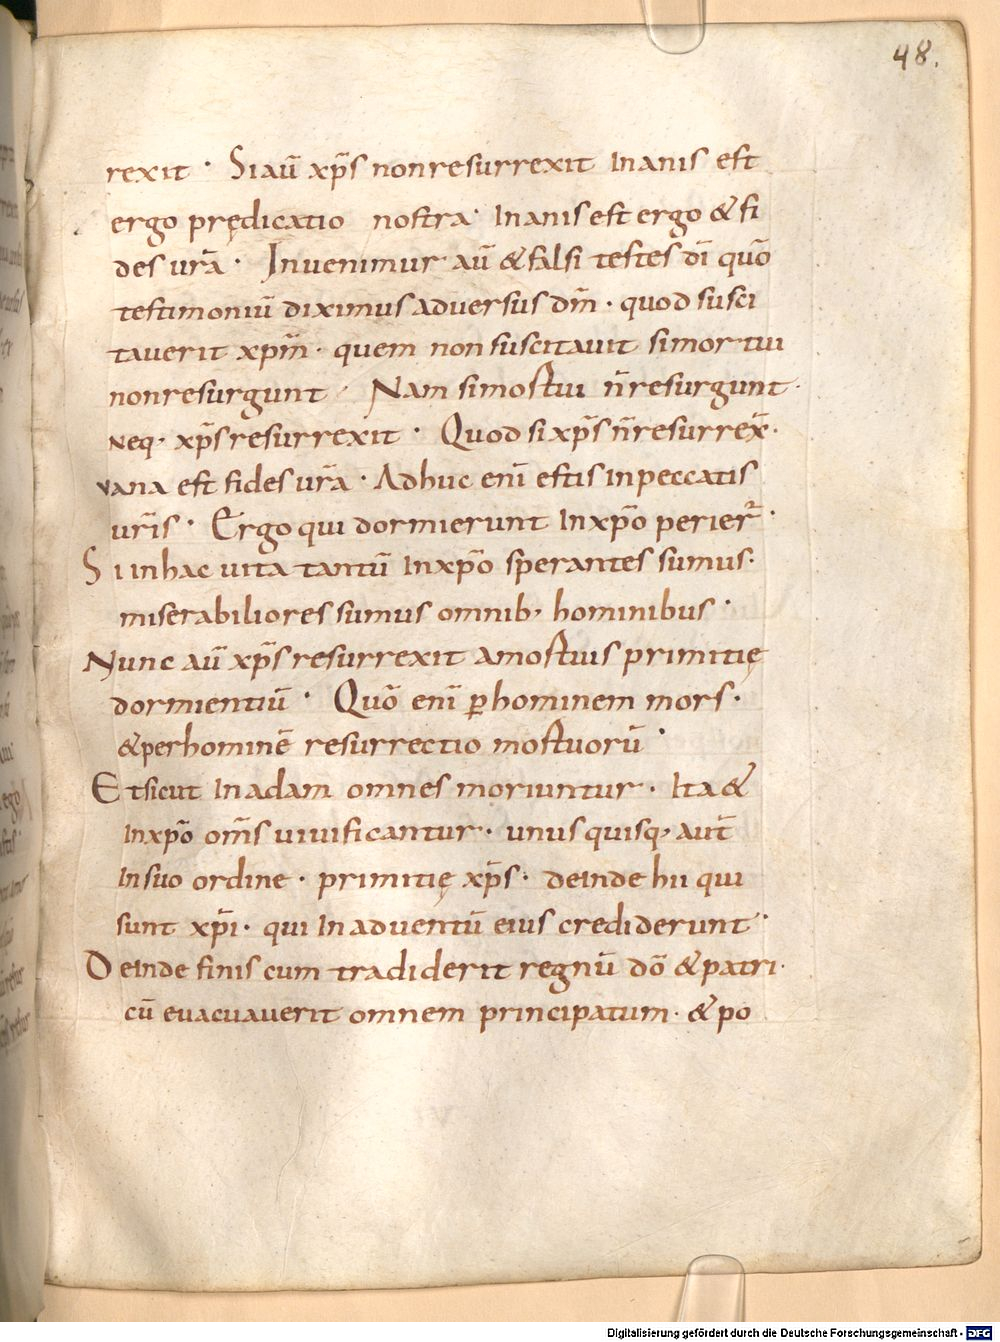 48.
rexit · Si aū xp̄s non resurrexit Inanis est
ergo prędicatio nostra · Inanis est ergo & fi
des ur̄a · Invenimur aū & falsi testes dī quō
testimoniū diximus adversus dm̄ · quod susci
taverit xpm̄ · quem non suscitavit si mortui
non resurgunt · Nam si mortui n̄ resurgunt ·
neq; xp̄s resurrexit · Quod si xp̄s n̄ resurrex̄ ·
vana est fides ur̄a · Adhuc enī estis in peccatis
ur̄is · Ergo qui dormierunt In xp̄o perier̄ ·
Si in hac uita tantū In xp̄o sperantes sumus ·
miserabiliores sumus omnib; hominibus ·
Nunc aū xp̄s resurrexit a mortuis primitię
dormientiū · Quō enī p̱ hominem mors ·
& per hominē resurrectio mortuorū ·
Et sicut In adam omnes moriuntur · Ita &
In xp̄o om̄s uiuificantur · unus quisq; aut̄
In suo ordine · primitię xp̄s · deinde hii qui
sunt xp̄i · qui In adventū eius crediderunt ·
Deinde finis cum tradiderit regnū dō & patri ·
cū evacuaverit omnem principatum · & po
Digitalisierung gefördert durch die Deutsche Forschungsgemeinschaft - DFG